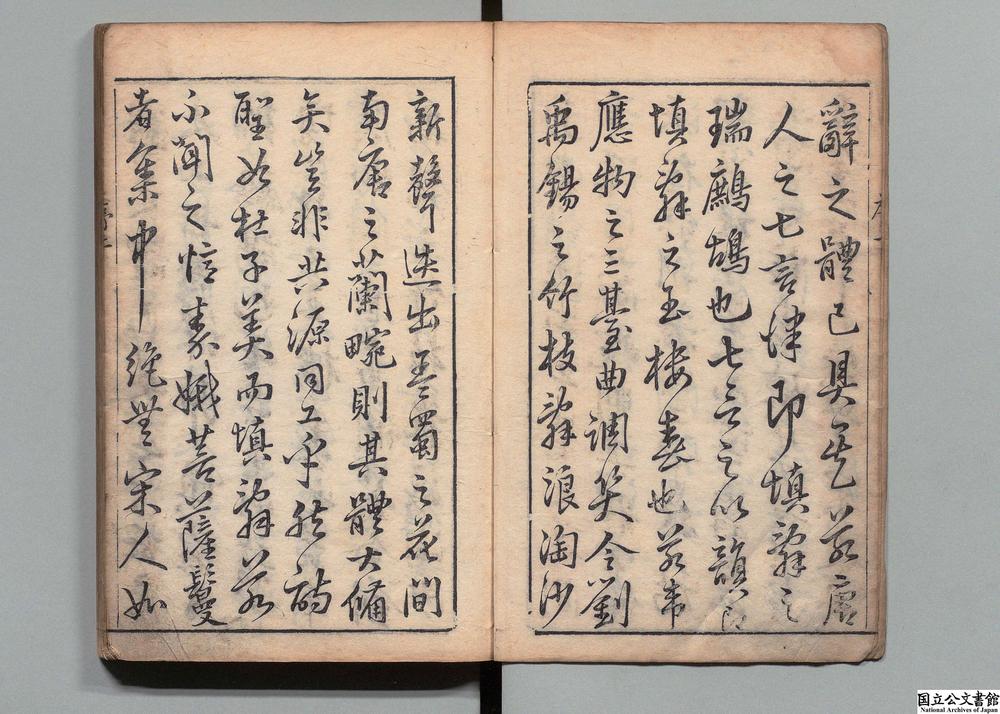 辭之體已具矣若唐
人之七言律即填辭之
瑞鷓鴣也七言之仄韻即
填辭之玉樓春也若韋
應物之三臺曲調笑令劉
禹錫之竹枝辭浪淘沙
新聲迭出孟蜀之花間
南唐之蘭畹則其體大備
矣豈非共源同工乎然詩
聖如杜子美而填辭若
不聞之憶秦娥菩薩鬘
者集中絕無宋人如
国立公文書館
National Archives of Japan